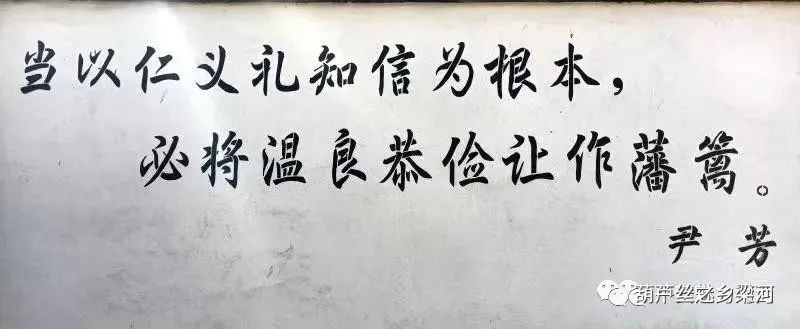 当以仁义礼知信为根本，
必将温良恭俭让作藩篱。
尹 芳
葫芦丝魅乡梁河